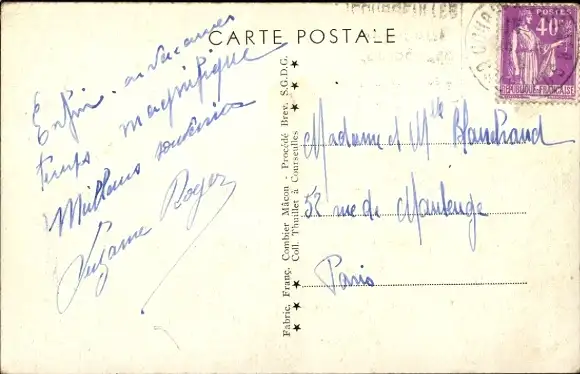 CARTE POSTALE
POSTES
40c
RÉPUBLIQUE FRANÇAISE
Enfin en vacances
temps magnifique
Meilleurs souvenirs
Suzanne Roger
Fabric. Franç. Combier Mâcon - Procédé Brev. S.G.D.G.
Coll. Thuillet à Courseulles
Madame et Mlle Blanchaud
52 rue de Maubeuge
Paris